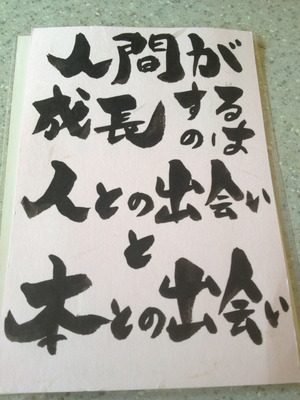 人間が
成長するのは
人との出会い
と
本との出会い